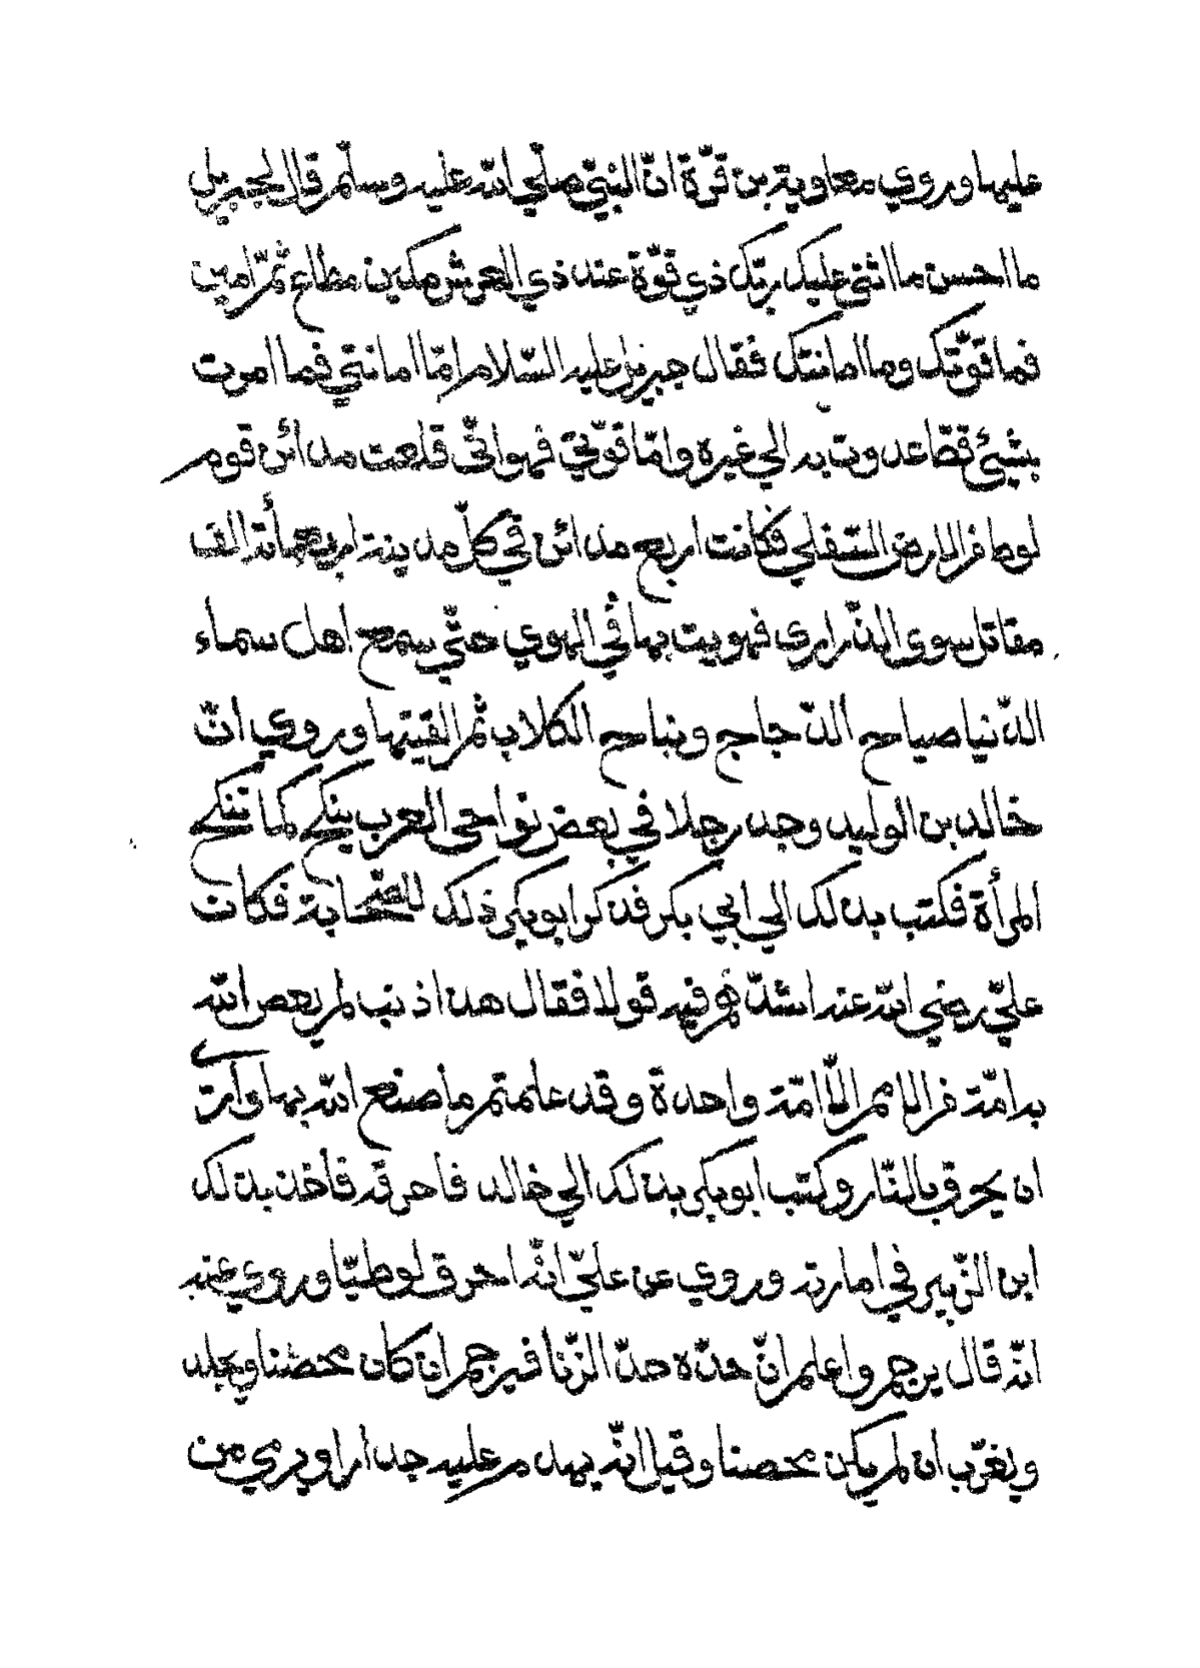 عليها وروي معاوية بن قرّة انّ النبيّ صلّي الله عليه وسلّم قال لجبريل
ما احسن ما اثنى عليك ربّك ذي قوّة عند ذي العرش مكين مطاع ثمّ امين
فما قوّتك وما امانتك فقال جبريل عليه السّلام امّا امانتي فما امرت
بشيئ قطّ فعدوت به الي غيره وامّا قوّتي فهو انّى قلعت مدائن قوم
لوط من الارض السّفلي فكانت اربع مدائن في كلّ مدينة اربعمأئة الف
مقاتل سوى الذّراري فهويت بها في الهوي حتّي سمع اهل سماء
الدّنيا صياح الدّجاج ونباح الكلاب ثمّ القيتها وروي انّ
خالد بن الوليد وجد رجلا في بعض نواحى العرب ينكح كما تنكح
المرأة فكتب بذلك الي ابي بكر فذكر ابو بكر ذلك للصّحابة فكان
عليّ رضي الله عنه اشدّهم فيه قولا فقال هذا ذنب لم يعص الله
به امّة من الامم الّا امّة واحدة وقد علمتم ما صنع الله بها وأرى
ان يحرق بالنّار وكتب ابو بكر بذلك الي خالد فأحرقه فأخذ بذلك
ابن الزّبير في امارته وروي عن عليّ انّه احرق لوطيّا وروي عنه
انّه قال يرجم واعلم انّ حدّه حدّ الزّنا فيرجم ان كان محصنا ويجلد
ويغرّب ان لم يكن محصنا وقيل انّه يهدم عليه جدار او يرمي من